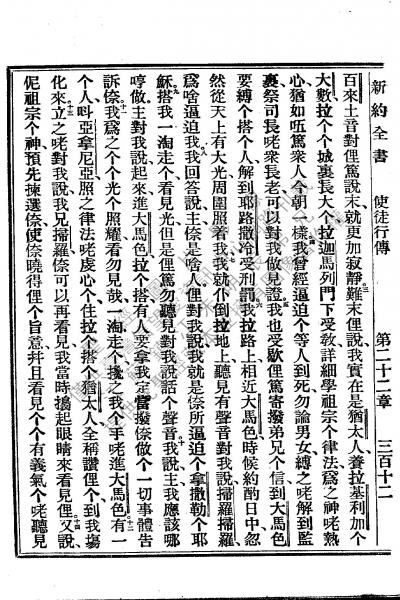 新約全書 使徒行傳 第二十二章 三百十二
百來土音對俚篤說末就更加寂靜難末俚說我實在是猶太人養拉基利加个
大數拉个个城裏長大个拉迦馬列門下受敎詳細學祖宗个律法爲之神咾熱
心猶如㑚篤衆人今朝一樣我曾經逼迫个等人到死勿論男女縛之咾解到監
裏祭司長咾衆長老可以對我做見證我也受歇俚篤寄撥弟兄个信到大馬色
要縛个搭个人解到耶路撒冷受刑罰我拉路上相近大馬色時候約酌日中忽
然從天上有大光周圍照着我我就仆倒拉地上聽見有聲音對我說掃羅掃羅
爲啥逼迫我我回答說主倷是啥人俚對我說我就是倷所逼迫个拿撒勒个耶
穌搭我一淘走个看見光但是俚篤勿聽見對我說話个聲音我說主我應該哪
哼做主對我說起來進大馬色拉个搭有人要拿我定當撥倷做个一切事體告
訴倷我爲之个个光个照耀看勿見哉一淘走个攙之我个手咾進大馬色有一
个人呌亞拿尼亞照之律法咾虔心个住拉个搭个猶太人全稱讚俚个到我塲
化來立之咾對我說兄掃羅倷可以再看見我當時擡起眼睛來看見俚又說
伲祖宗个神預先揀選倷使倷曉得俚个旨意幷且看見个个有義氣个咾聽見